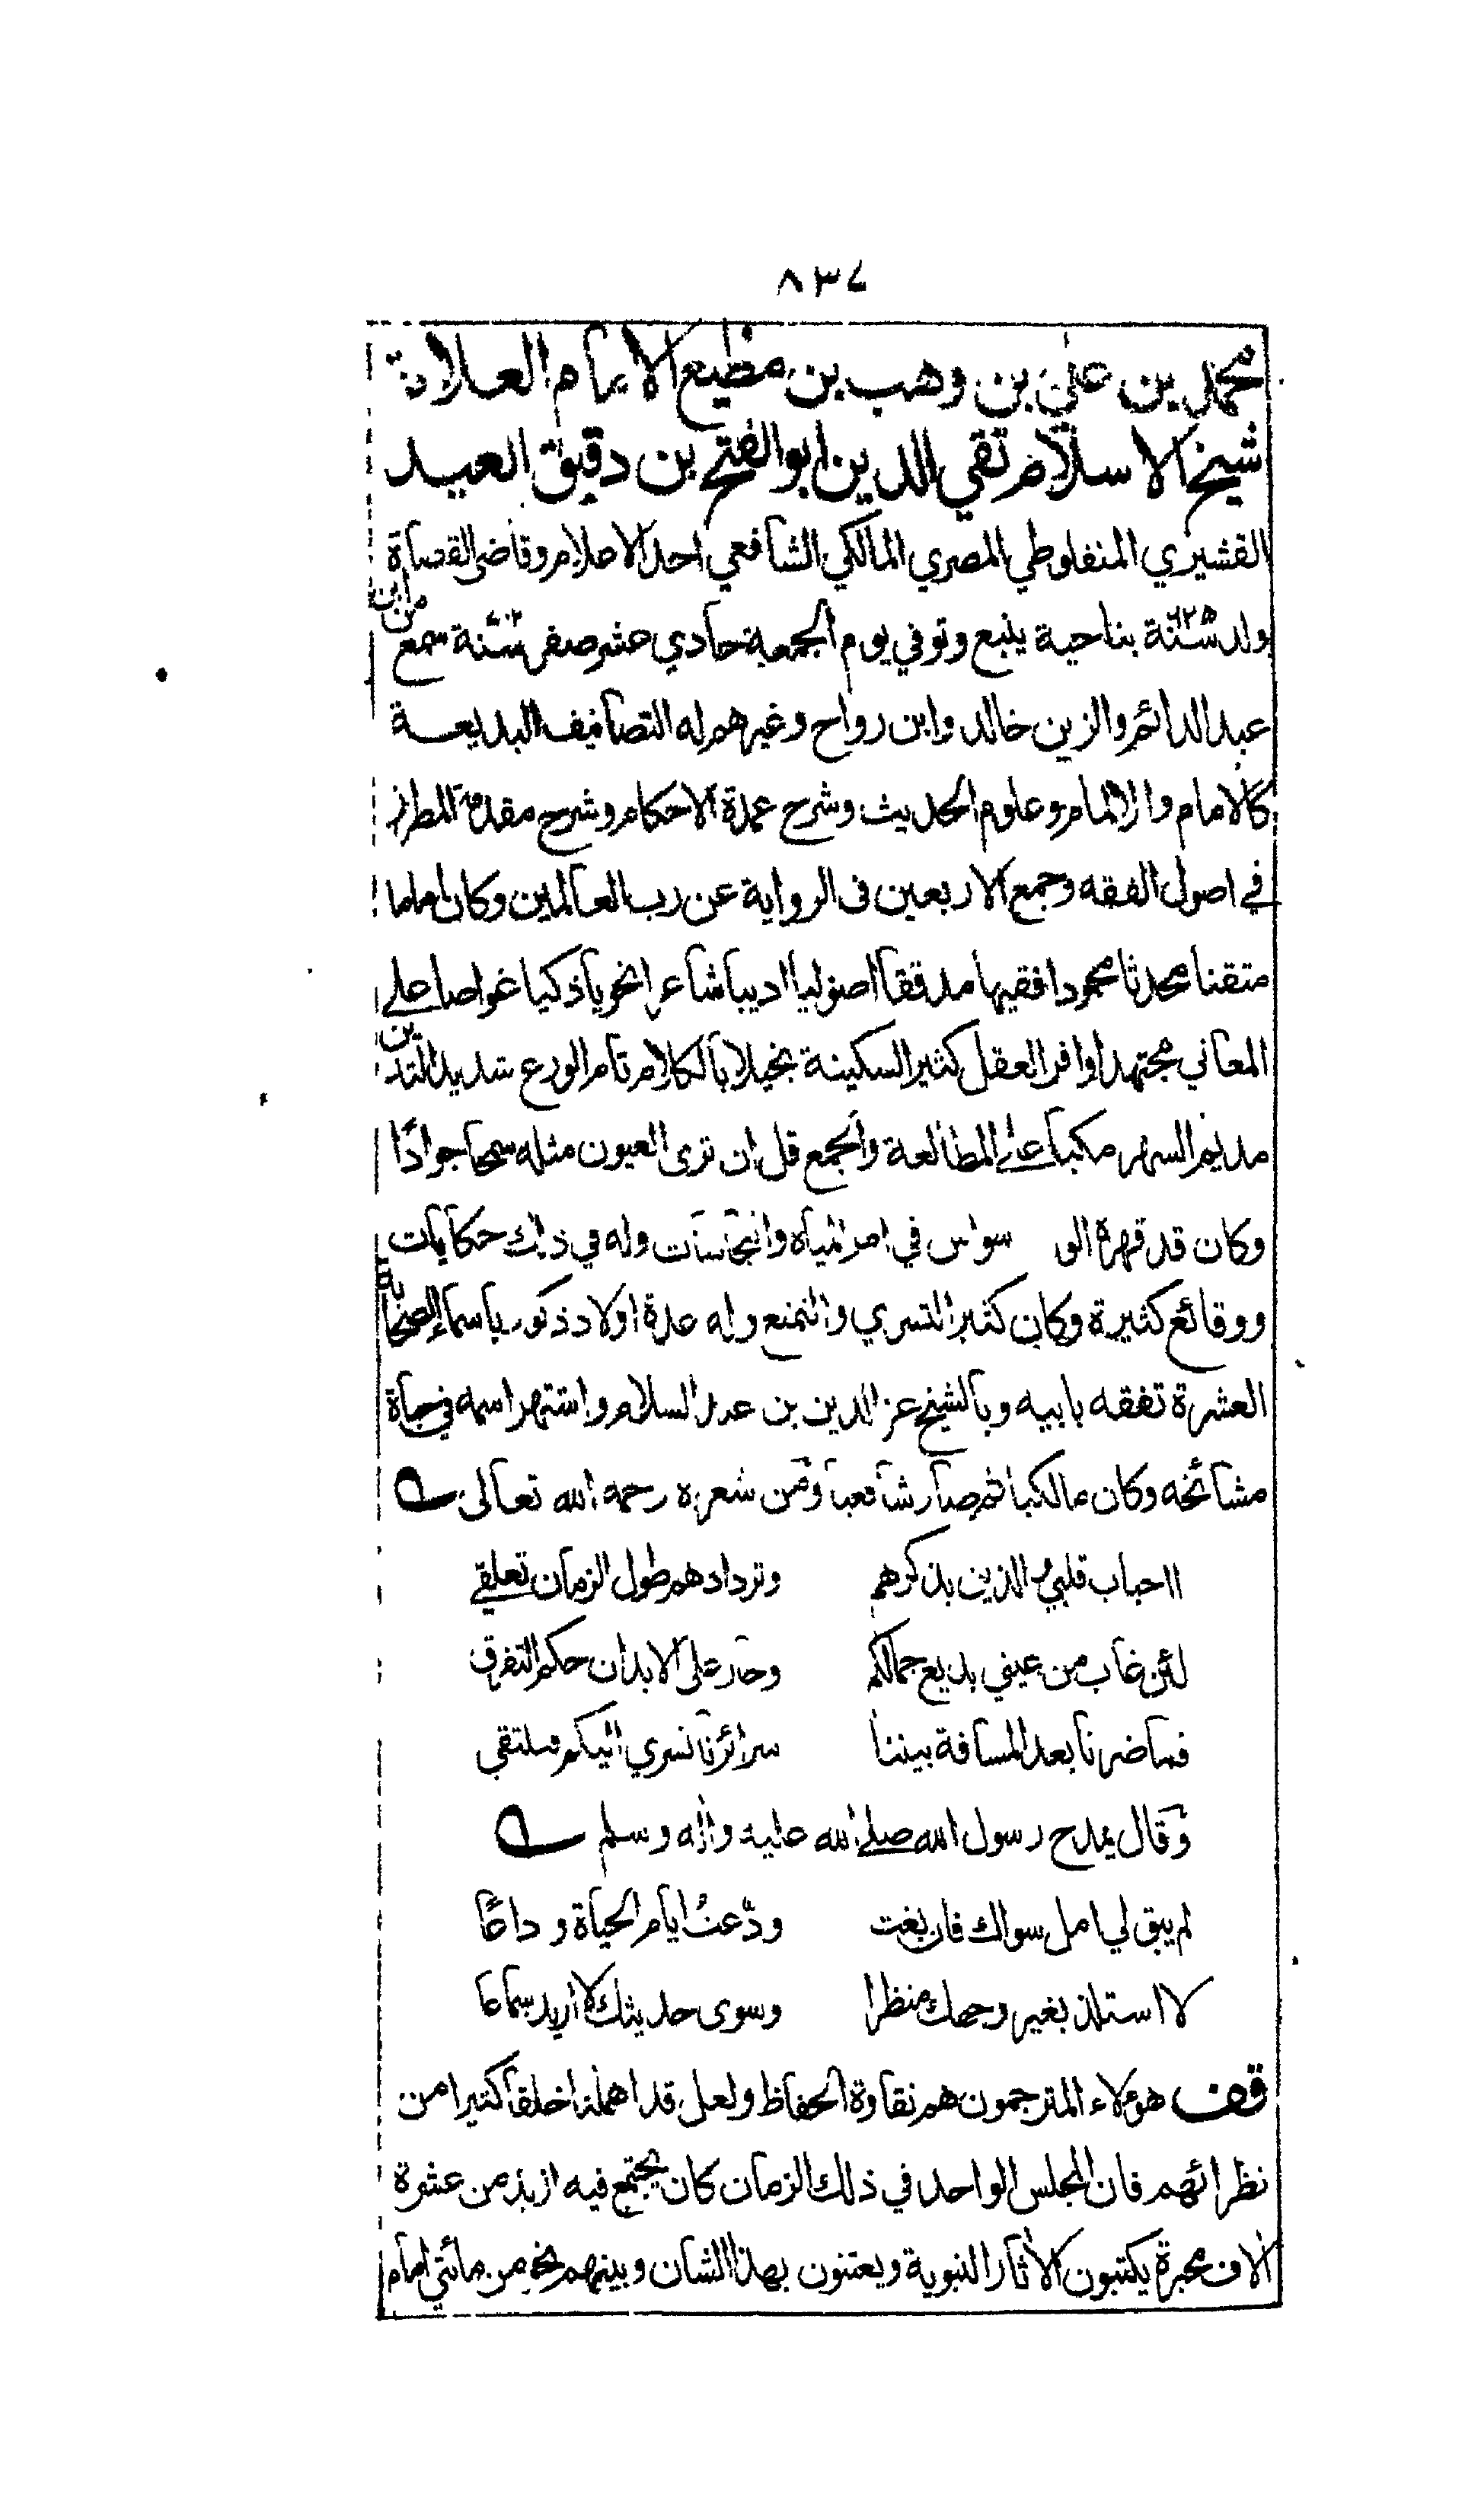 ٨٣٧
محمد بن علي بن وهب بن مطيع الامام العلامة
شيخ الاسلام تقي الدين ابو الفتح بن دقيق العيد
القشيري المنفلوطي المصري المالكي الشافعي احد الاعلام وقاضى القضاة
ولد سنة ٦٢٥ بناحية ينبع وتوفي يوم الجمعة حادي عشر صفر سنة ٧٠٢ سمع من ابن
عبد الدائم والزين خالد وابن رواح وغيرهم له التصانيف البديعة
كالامام والالمام وعلوم الحديث وشرح عمدة الاحكام وشرح مقدمة المطرزي
في اصول الفقه وجمع الاربعين فى الرواية عن رب العالمين وكان اماما
متقنا محدثا مجودا فقيها مدققا اصوليا اديبا شاعرا نحويا ذكيا غواصا على
المعاني مجتهدا وافر العقل كثير السكينة بخيلا بالكلام تام الورع شديد التدين
مديم السهر مكبا على المطالعة والجمع قل ان ترى العيون مثله سمحا جوادًا
وكان قد قهره الو سواس في امر المياه والنجاسات وله في ذلك حكايات
ووقائع كثيرة وكان كثير التسري والتمتع وله عدة اولاد ذكور باسماء الصحابة
العشرة تفقه بابيه وبالشيخ عز الدين بن عبد السلام واشتهر اسمه في حياة
مشائخه وكان مالكيا ثم صار شافعيا ومن شعره رحمه الله تعالى
ااحباب قلبي والذين بذكرهم وتردادهم طول الزمان تعلقي
لئن غاب من عيني بديع جمالكم وجار على الابدان حكم التفرق
فما ضرنا بعد المسافة بيننا سرائرنا تسري اليكم فنلتقي
وقال يمدح رسول الله صلى الله عليه واله وسلم
لم يبق لي امل سواك فان يفت ودّعتُ ايام الحياة وداعًا
لا استلذ بغير وجهك منظرا وسوى حديثك لا اريد سماعا
قف هؤلاء المترجمون هم نقاوة الحفاظ ولعل قد اهملنا خلقا كثيرا من
نظرائهم فان المجلس الواحد في ذلك الزمان كان يجتمع فيه ازيد من عشرة
الاف محبرة يكتبون الاثار النبوية ويعتنون بهذا الشان وبينهم نحو من مائتي امام